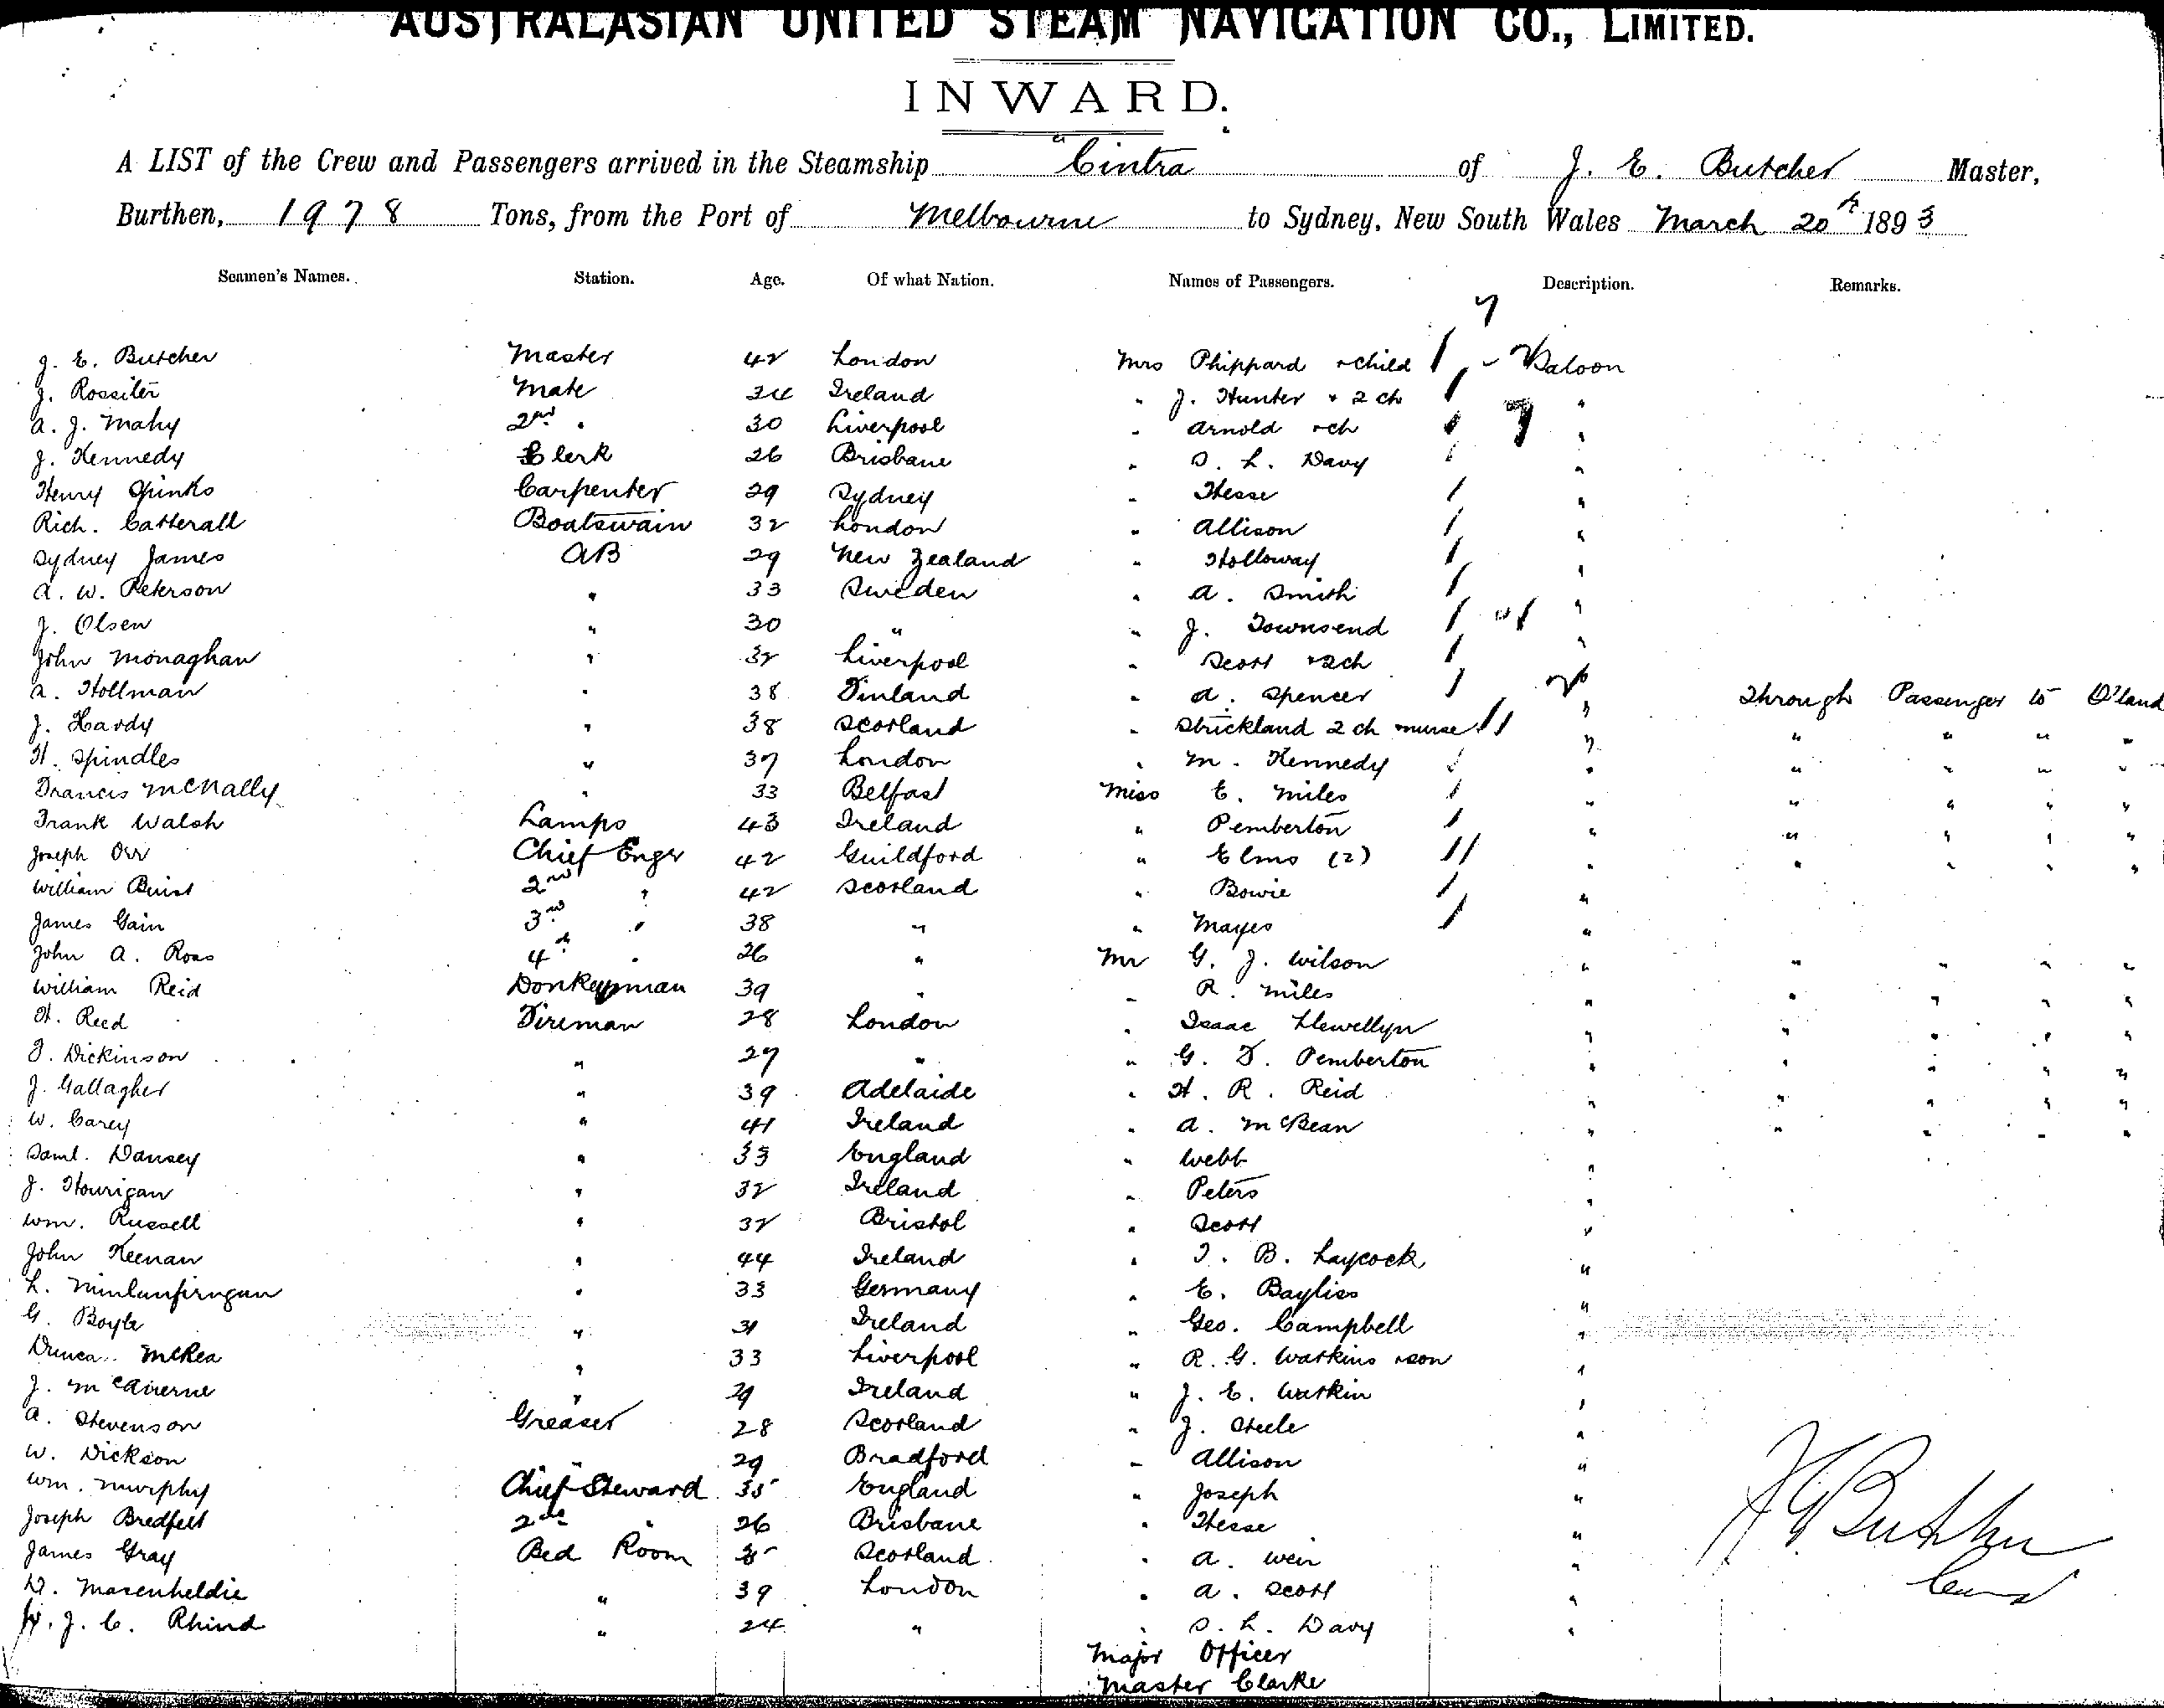 AUSTRALASIAN UNITED STEAM NAVIGATION CO., LIMITED.
INWARD.
A LIST of the Crew and Passengers arrived in the Steamship "Cintra of J. E. Butcher Master,
Burthen, 1978 Tons, from the Port of Melbourne to Sydney, New South Wales March 20th 1893
Seamen's Names. Station. Age. Of what Nation. Names of Passengers. Description. Remarks.
7
J. E. Butcher Master 42 London Mrs Phippard + child / - Saloon
J. Rossiter Mate 34 Ireland " J. Hunter + 2 ch / "
A. J. Mahy 2nd " 30 Liverpool " Arnold + ch / 7 "
J. Kennedy Clerk 26 Brisbane " S. L. Davy / "
Henry Spinks Carpenter 29 Sydney " Hesse / "
Rich. Catterall Boatswain 32 London " Allison / "
Sydney James AB 29 New Zealand " Holloway / "
A. W. Peterson " 33 Sweden " A. Smith / "
J. Olsen " 30 " " J. Townsend / "
John Monaghan " 32 Liverpool " Scott + 2 ch / "
A. Hollman " 38 Finland " A. Spencer / " Through Passenger to Q'land
J. Hardy " 38 Scotland " Strickland 2 ch + nurse // " " " " "
H. Spindles " 37 London " M. Kennedy / " " " " "
Francis McNally " 33 Belfast Miss E. Miles / " " " " "
Frank Walsh Lamps 43 Ireland " Pemberton / " " " " "
Joseph Orr Chief Engr 42 Guildford " Elms (2) // " " " " "
William Buist 2nd " 42 Scotland " Bowie / "
James Gain 3rd " 38 " " Mayes / "
John A. Ross 4th " 26 " Mr G. J. Wilson " " " " "
William Reid Donkeyman 39 " " R. Miles " " " " "
H. Reed Fireman 28 London " Isaac Llewellyn " " " " "
F. Dickinson " 27 " " G. F. Pemberton " " " " "
J. Gallagher " 39 Adelaide " H. R. Reid " " " " "
W. Carey " 41 Ireland " A. McBean " " " " "
Saml. Dansey " 33 England " Webb "
J. Hourigan " 32 Ireland " Peters "
Wm. Russell " 32 Bristol " Scott "
John Keenan " 44 Ireland " T. B. Laycock "
L. " 33 Germany " E. Bayliss "
G. Boyle " 31 Ireland " Geo. Campbell "
McRea " 33 Liverpool " R. G. Watkins + son "
J. " 29 Ireland " J. E. Watkin "
A. Stevenson Greaser 28 Scotland " J. Steele "
W. Dickson " 29 Bradford " Allison "
Wm. Murphy Chief Steward 35 England " Joseph "
Joseph Bredfelt 2nd " 26 Brisbane " Hesse "
James Gray Bed Room Scotland " A. Weir "
" 39 London " A. Scott "
J. C. Rhind " 24 " " S. L. Davy "
Major Officer
Master Clarke